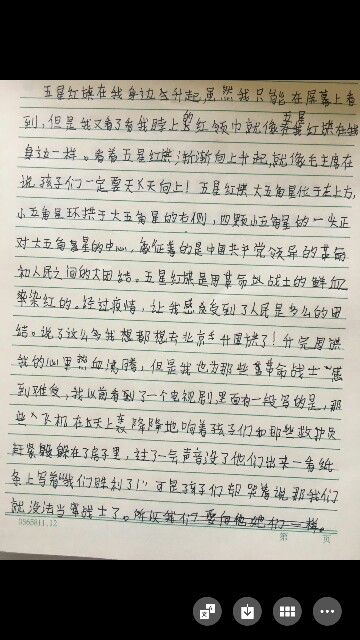 五星红旗在我身边冬升起,虽然我只能在屏幕上看
到,但是我又看了看我脖上的红领巾就像五星红旗在我
身边一样。看着五星红旗渐渐向上升起,就像毛主席在
说孩子们一定要天天向上!五星红旗大五角星位于左上方,
小五角星环拱于大五角星的右侧,四颗小五角星的一尖正
对大五角星的中心,象征着的是中国共产党领导的革命
和人民之间的大团结。五星红旗是用革命战士的鲜血
染红的。经过疫情,让我感受到了人民是多么的团
结。说了这么多我想都想去北京看升国旗了!升完国旗
我的心里热血沸腾,但是我也为那些革命战士感
到难受,我以前看到了一个电视剧里面有一段写的是,那
些飞机在上空轰隆隆地响着孩子们和那些救护员
赶紧躲在了房子里,过了一会声音没了他们出来一看纸
条上写着"我们胜利了!"可是孩子们却哭着说那我们
就没法当战士了。所以我们要向他她们一样。
0565811.12
第 页